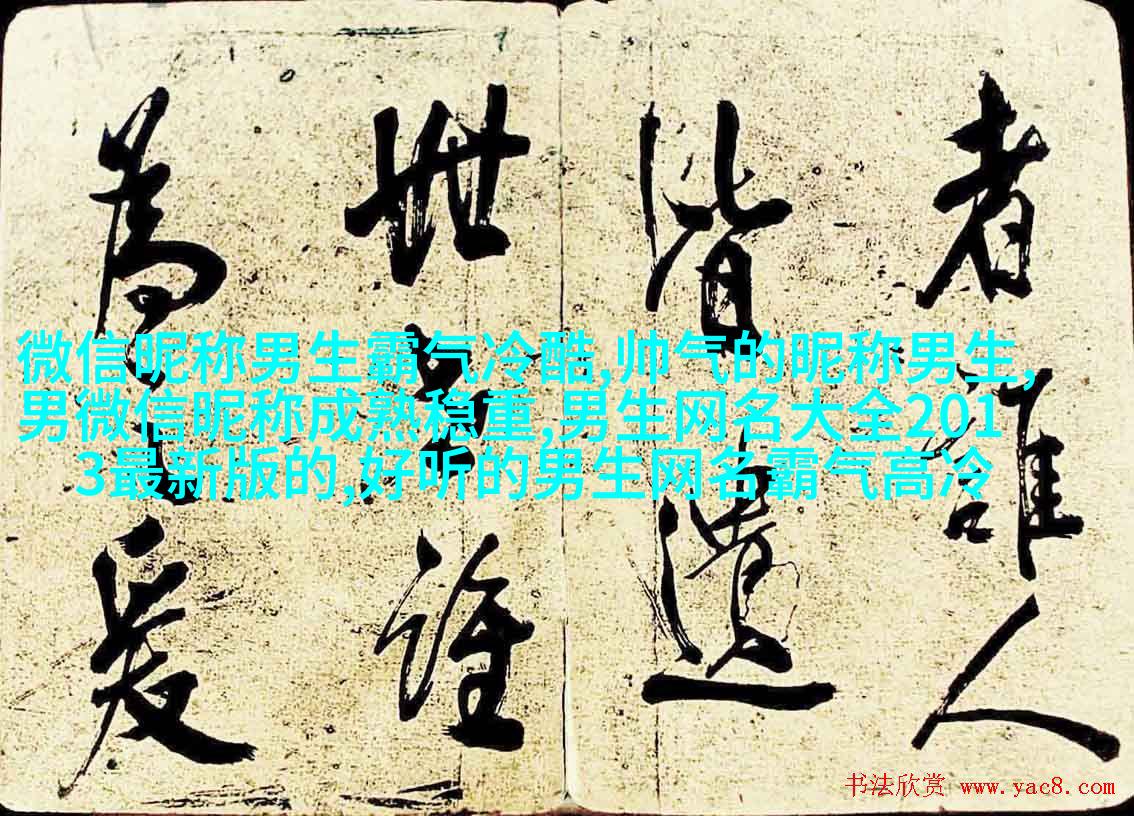 者誰人
皆遺
世誰
為爰
微信昵称男生霸气冷酷,帅气的昵称男生,
男微信昵称成熟稳重,男生网名大全201
3最新版的,好听的男生网名霸气高冷
书法欣赏 www.yac8.com